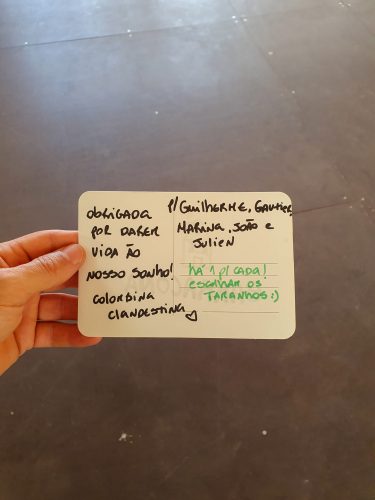 obrigada
por darem
vida ao
nosso sonho!
colombina
clandestina
p/ Guilherme, Gautier,
Marina, João e
Julien
há 1 p/ cada!
escolham os
tamanhos :)